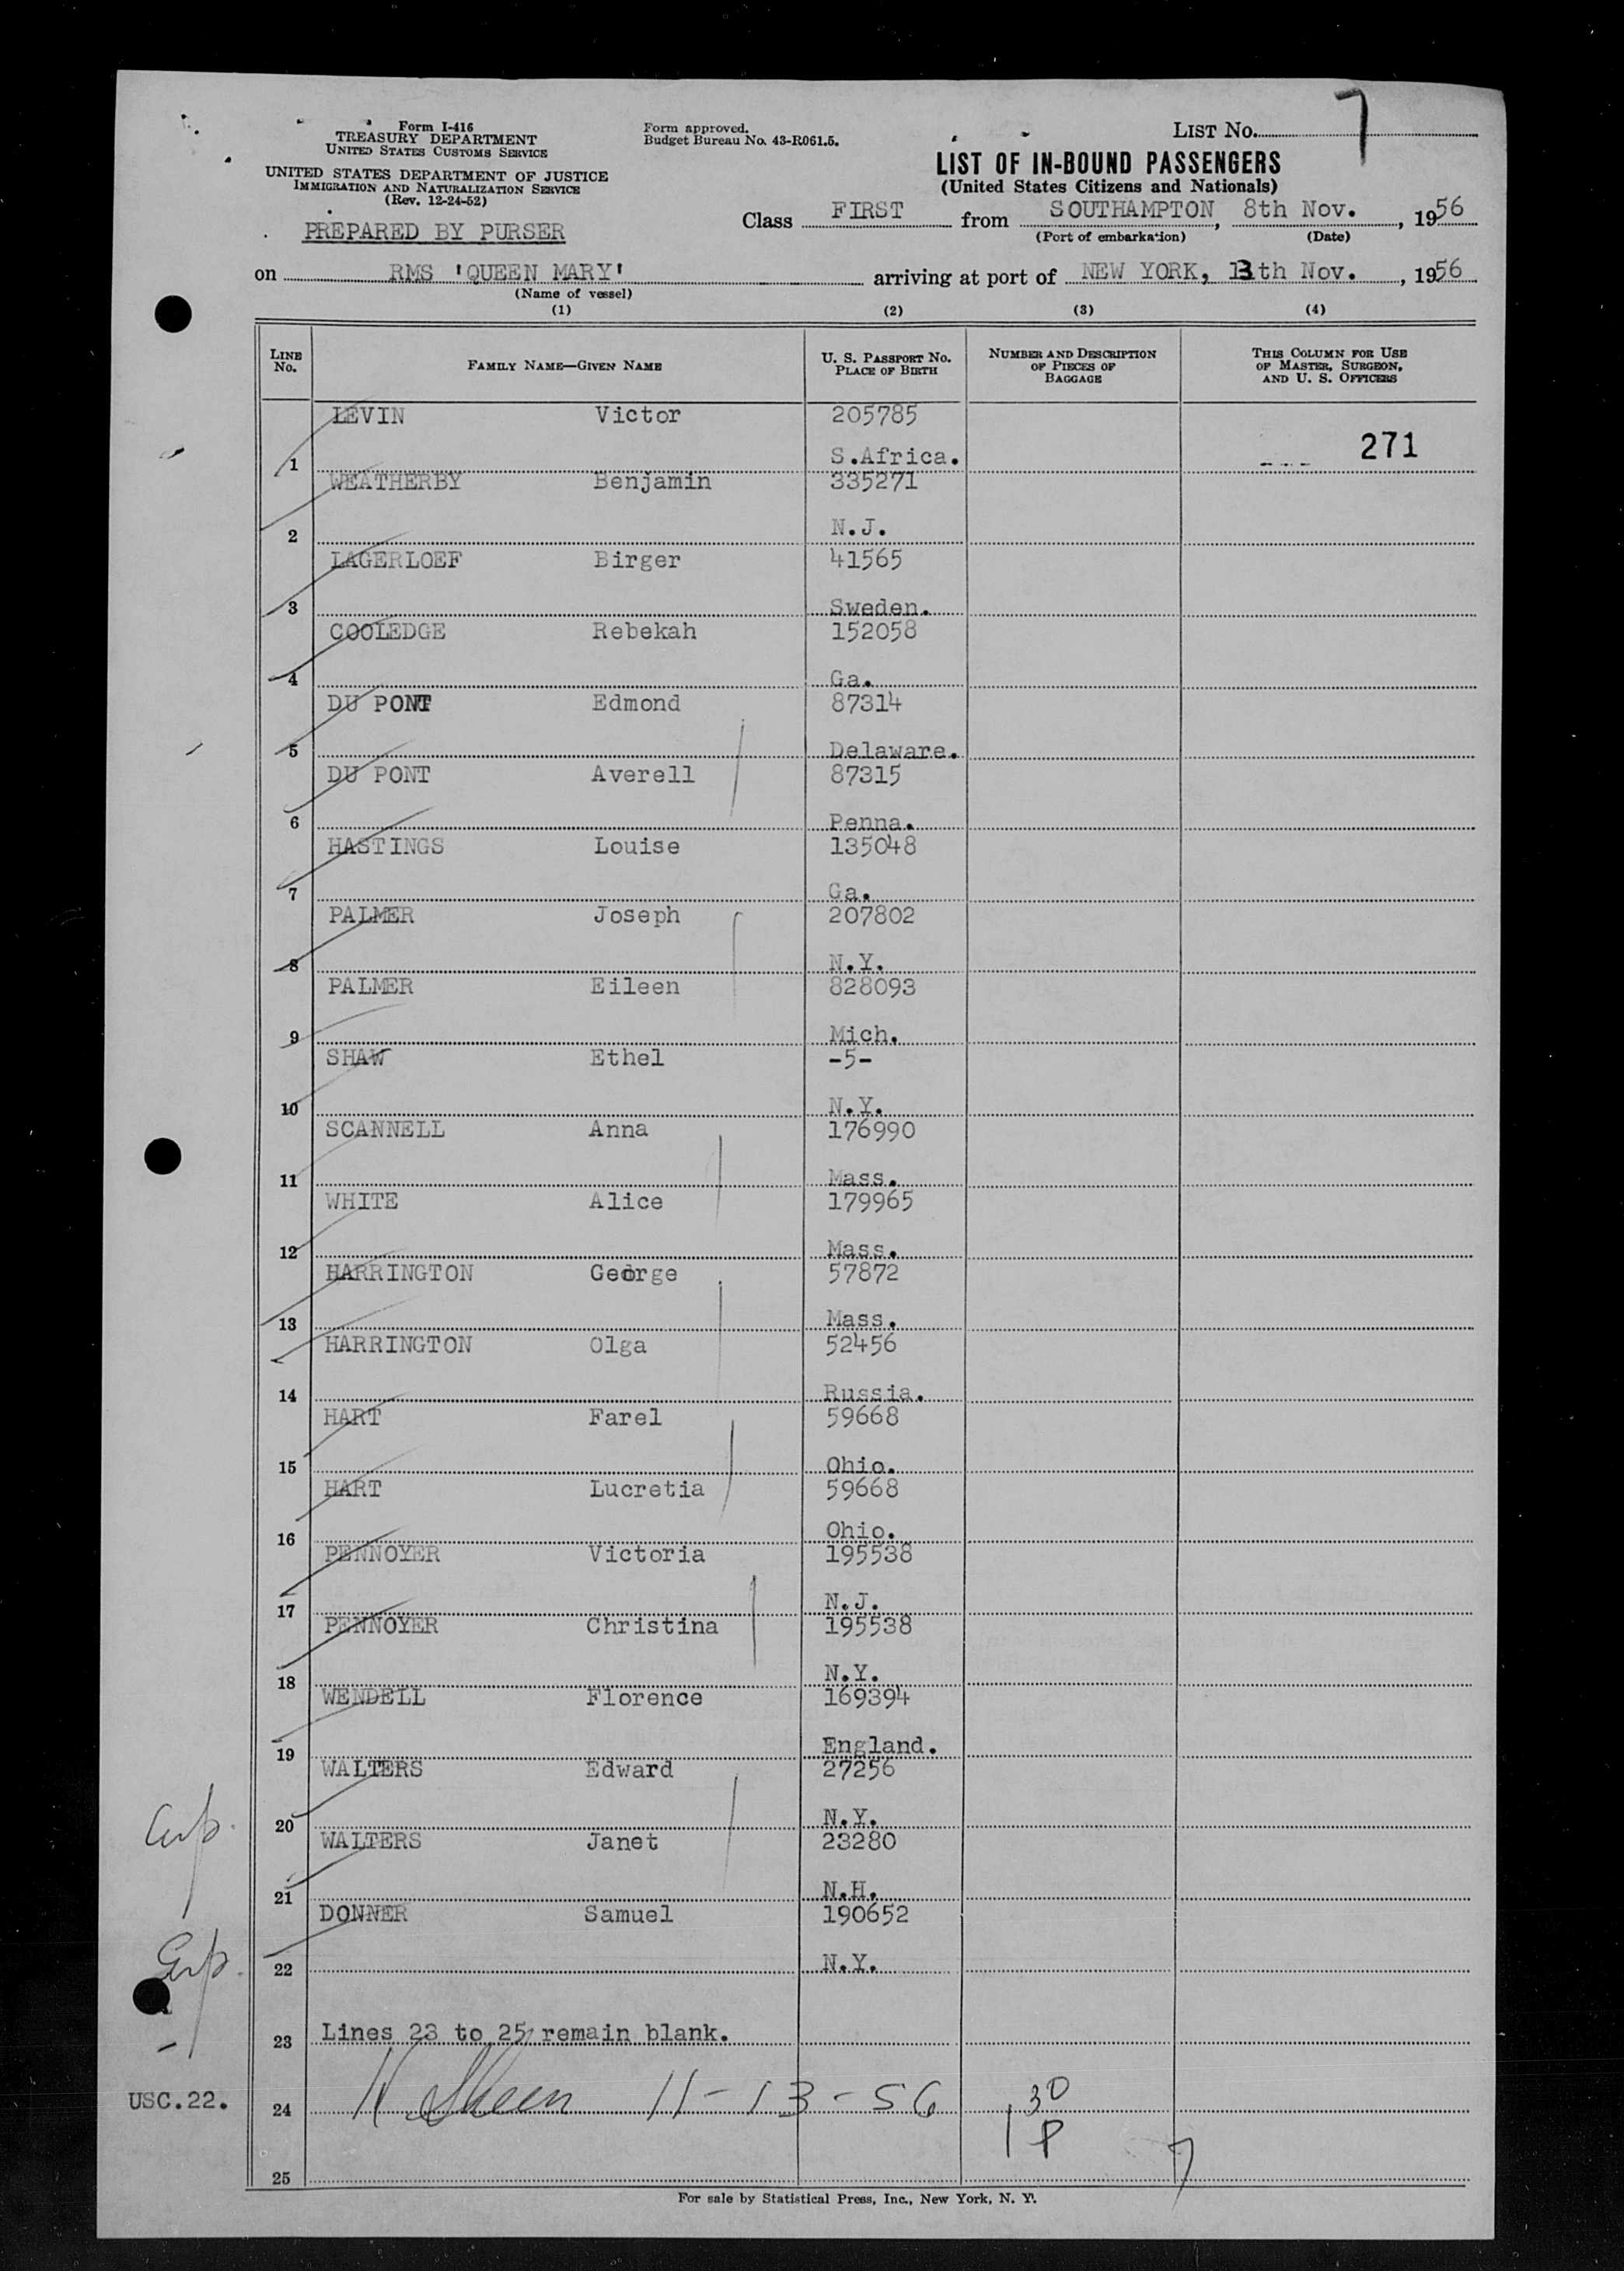 Form I-416
TREASURY DEPARTMENT
UNITED STATES CUSTOMS SERVICE
UNITED STATES DEPARTMENT OF JUSTICE
IMMIGRATION AND NATURALIZATION SERVICE
(Rev. 12-24-52)
PREPARED BY PURSER
Form approved.
Budget Bureau No. 43-R061.5.
LIST No. 7
LIST OF IN-BOUND PASSENGERS
(United States Citizens and Nationals)
Class FIRST from SOUTHAMPTON, 8th Nov., 1956
(Port of embarkation) (Date)
on RMS 'QUEEN MARY' arriving at port of NEW YORK, 13th Nov., 1956
(Name of vessel)
(1) (2) (3) (4)
LINE No. FAMILY NAME—GIVEN NAME U. S. PASSPORT No. PLACE OF BIRTH NUMBER AND DESCRIPTION OF PIECES OF BAGGAGE THIS COLUMN FOR USE OF MASTER, SURGEON, AND U. S. OFFICERS
LEVIN Victor 205785
1 S.Africa. 271
WEATHERBY Benjamin 335271
2 N.J.
LAGERLOEF Birger 41565
3 Sweden.
COOLEDGE Rebekah 152058
4 Ga.
DU PONT Edmond 87314
5 Delaware.
DU PONT Averell 87315
6 Penna.
HASTINGS Louise 135048
7 Ga.
PALMER Joseph 207802
8 N.Y.
PALMER Eileen 828093
9 Mich.
SHAW Ethel -5-
10 N.Y.
SCANNELL Anna 176990
11 Mass.
WHITE Alice 179965
12 Mass.
HARRINGTON George 57872
13 Mass.
HARRINGTON Olga 52456
14 Russia.
HART Farel 59668
15 Ohio.
HART Lucretia 59668
16 Ohio.
PENNOYER Victoria 195538
17 N.J.
PENNOYER Christina 195538
18 N.Y.
WENDELL Florence 169394
19 England.
WALTERS Edward 27256
20 N.Y.
WALTERS Janet 23280
21 N.H.
DONNER Samuel 190652
22 N.Y.
23 Lines 23 to 25 remain blank.
USC.22. 24 11-13-56 30
1 P 7
25
For sale by Statistical Press, Inc., New York, N. Y.